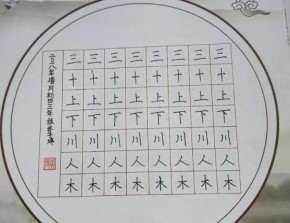 三十上下川人木
三十上下川人木
三十上下川人木
三十上下川人木
三十上下川人木
三十上下川人木
三十上下川人木
三十上下川人木
二〇一八年